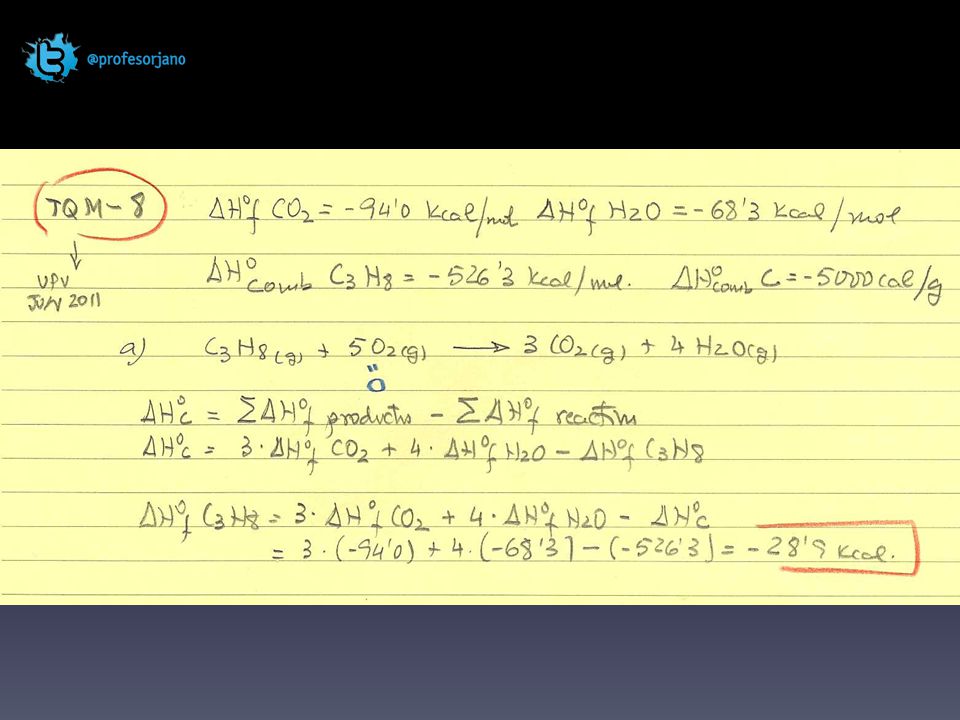 @profesorjano
TQM-8 ΔHºf CO2 = -94'0 kcal/mol ΔHºf H2O = -68'3 kcal/mol
UPV
JUN 2011
ΔHºcomb C3H8 = -526'3 kcal/mol. ΔHºcomb C = -5000 cal/g
a) C3H8(g) + 5O2(g) → 3 CO2(g) + 4 H2O(g)
"
0
ΔHºc = ΣΔHºf productos - ΣΔHºf reactivos
ΔHºc = 3·ΔHºf CO2 + 4·ΔHºf H2O - ΔHºf C3H8
ΔHºf C3H8 = 3·ΔHºf CO2 + 4·ΔHºf H2O - ΔHºc
= 3·(-94'0) + 4·(-68'3) - (-526'3) = -28'9 kcal.